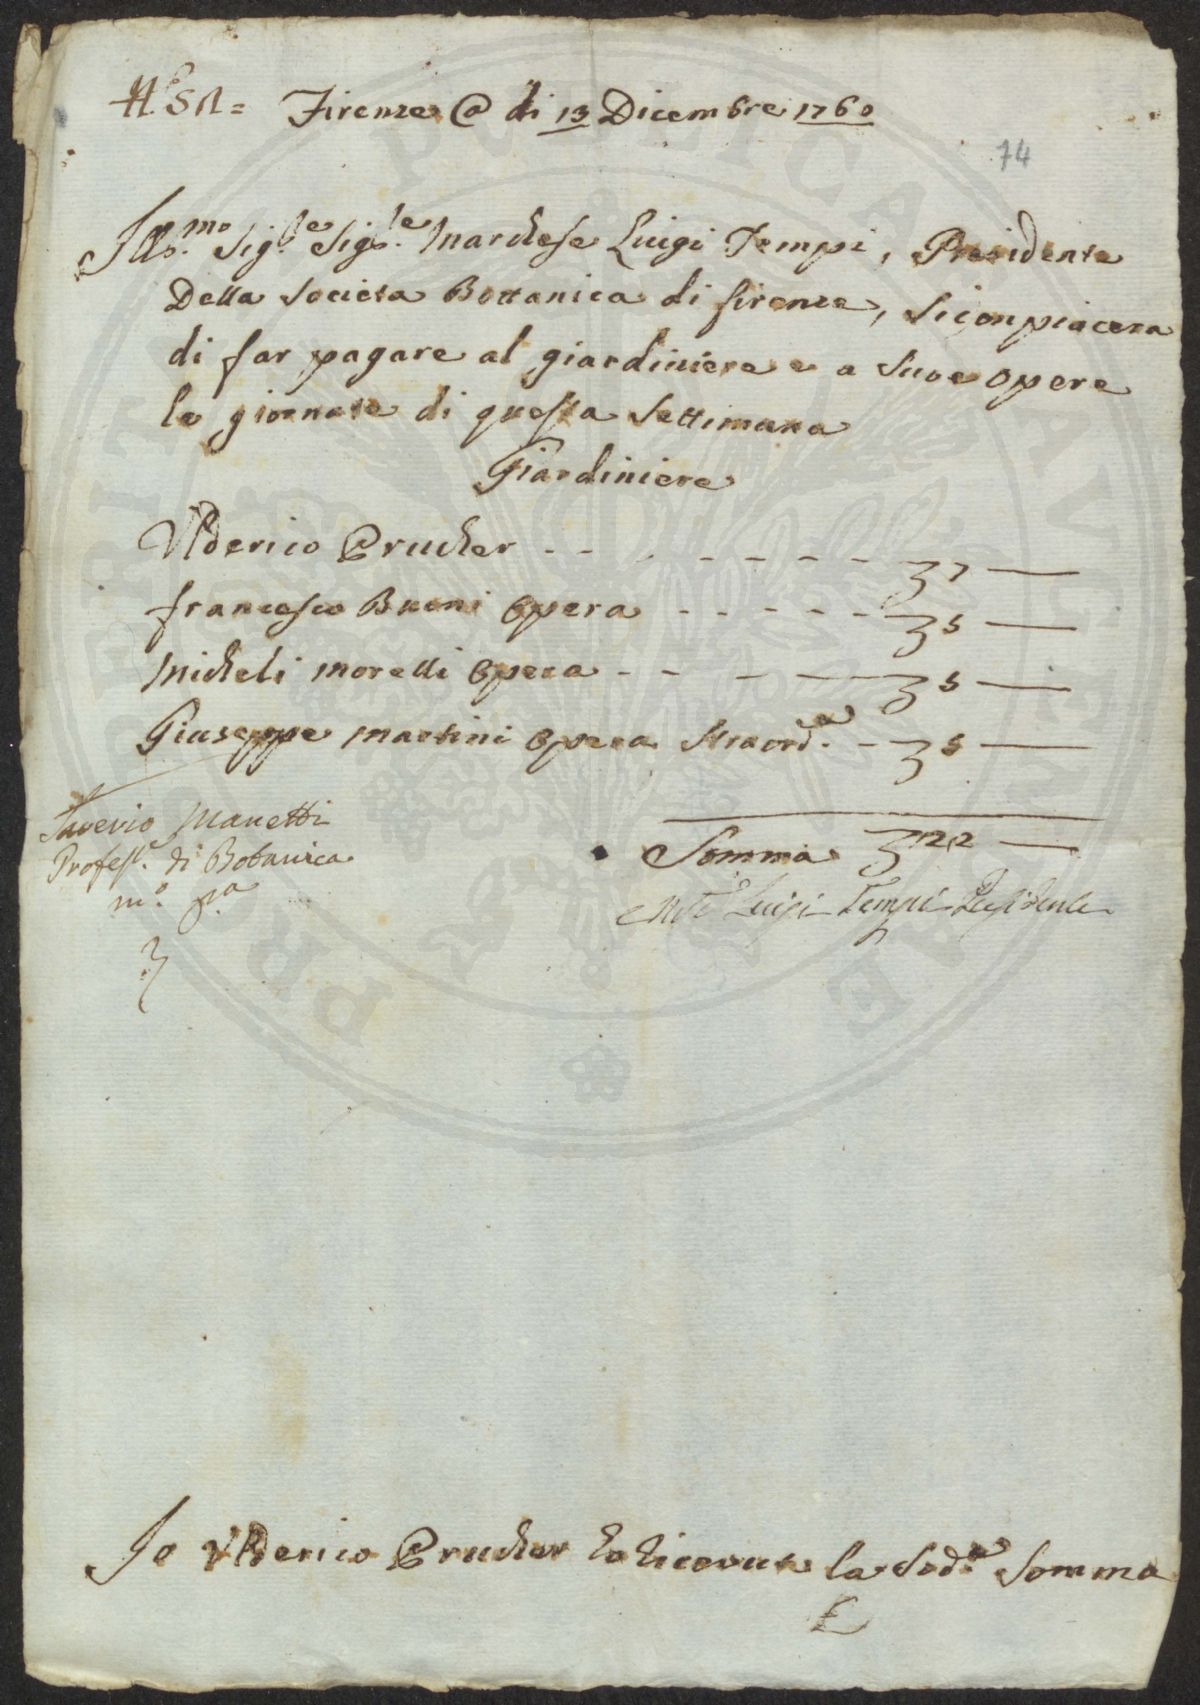 Firenze @ di 13 Dicembre 1760
74
Ill.mo Sig.re Sig.re Marchese Luigi Tempi, Presidente
Della Societa Bottanica di firenze, Si conpiacera
di far pagare al giardiniere e a Suoe opere
le giornate di questa Settimana
Giardiniere
Ulderico Prucher - - - - - - - 7 —
francesco Buoni Opera - - - - - 5 —
Micheli Morelli Opera - - - - 5 —
Giuseppe Martini Opera Straord.a - 5 —
Saverio Manetti
Profess.e di Botanica
m.o p.a
Somma 22 —
Luigi Tempi Presidente
Io Ulderico Prucher ho ricevuto la Sud.a Somma